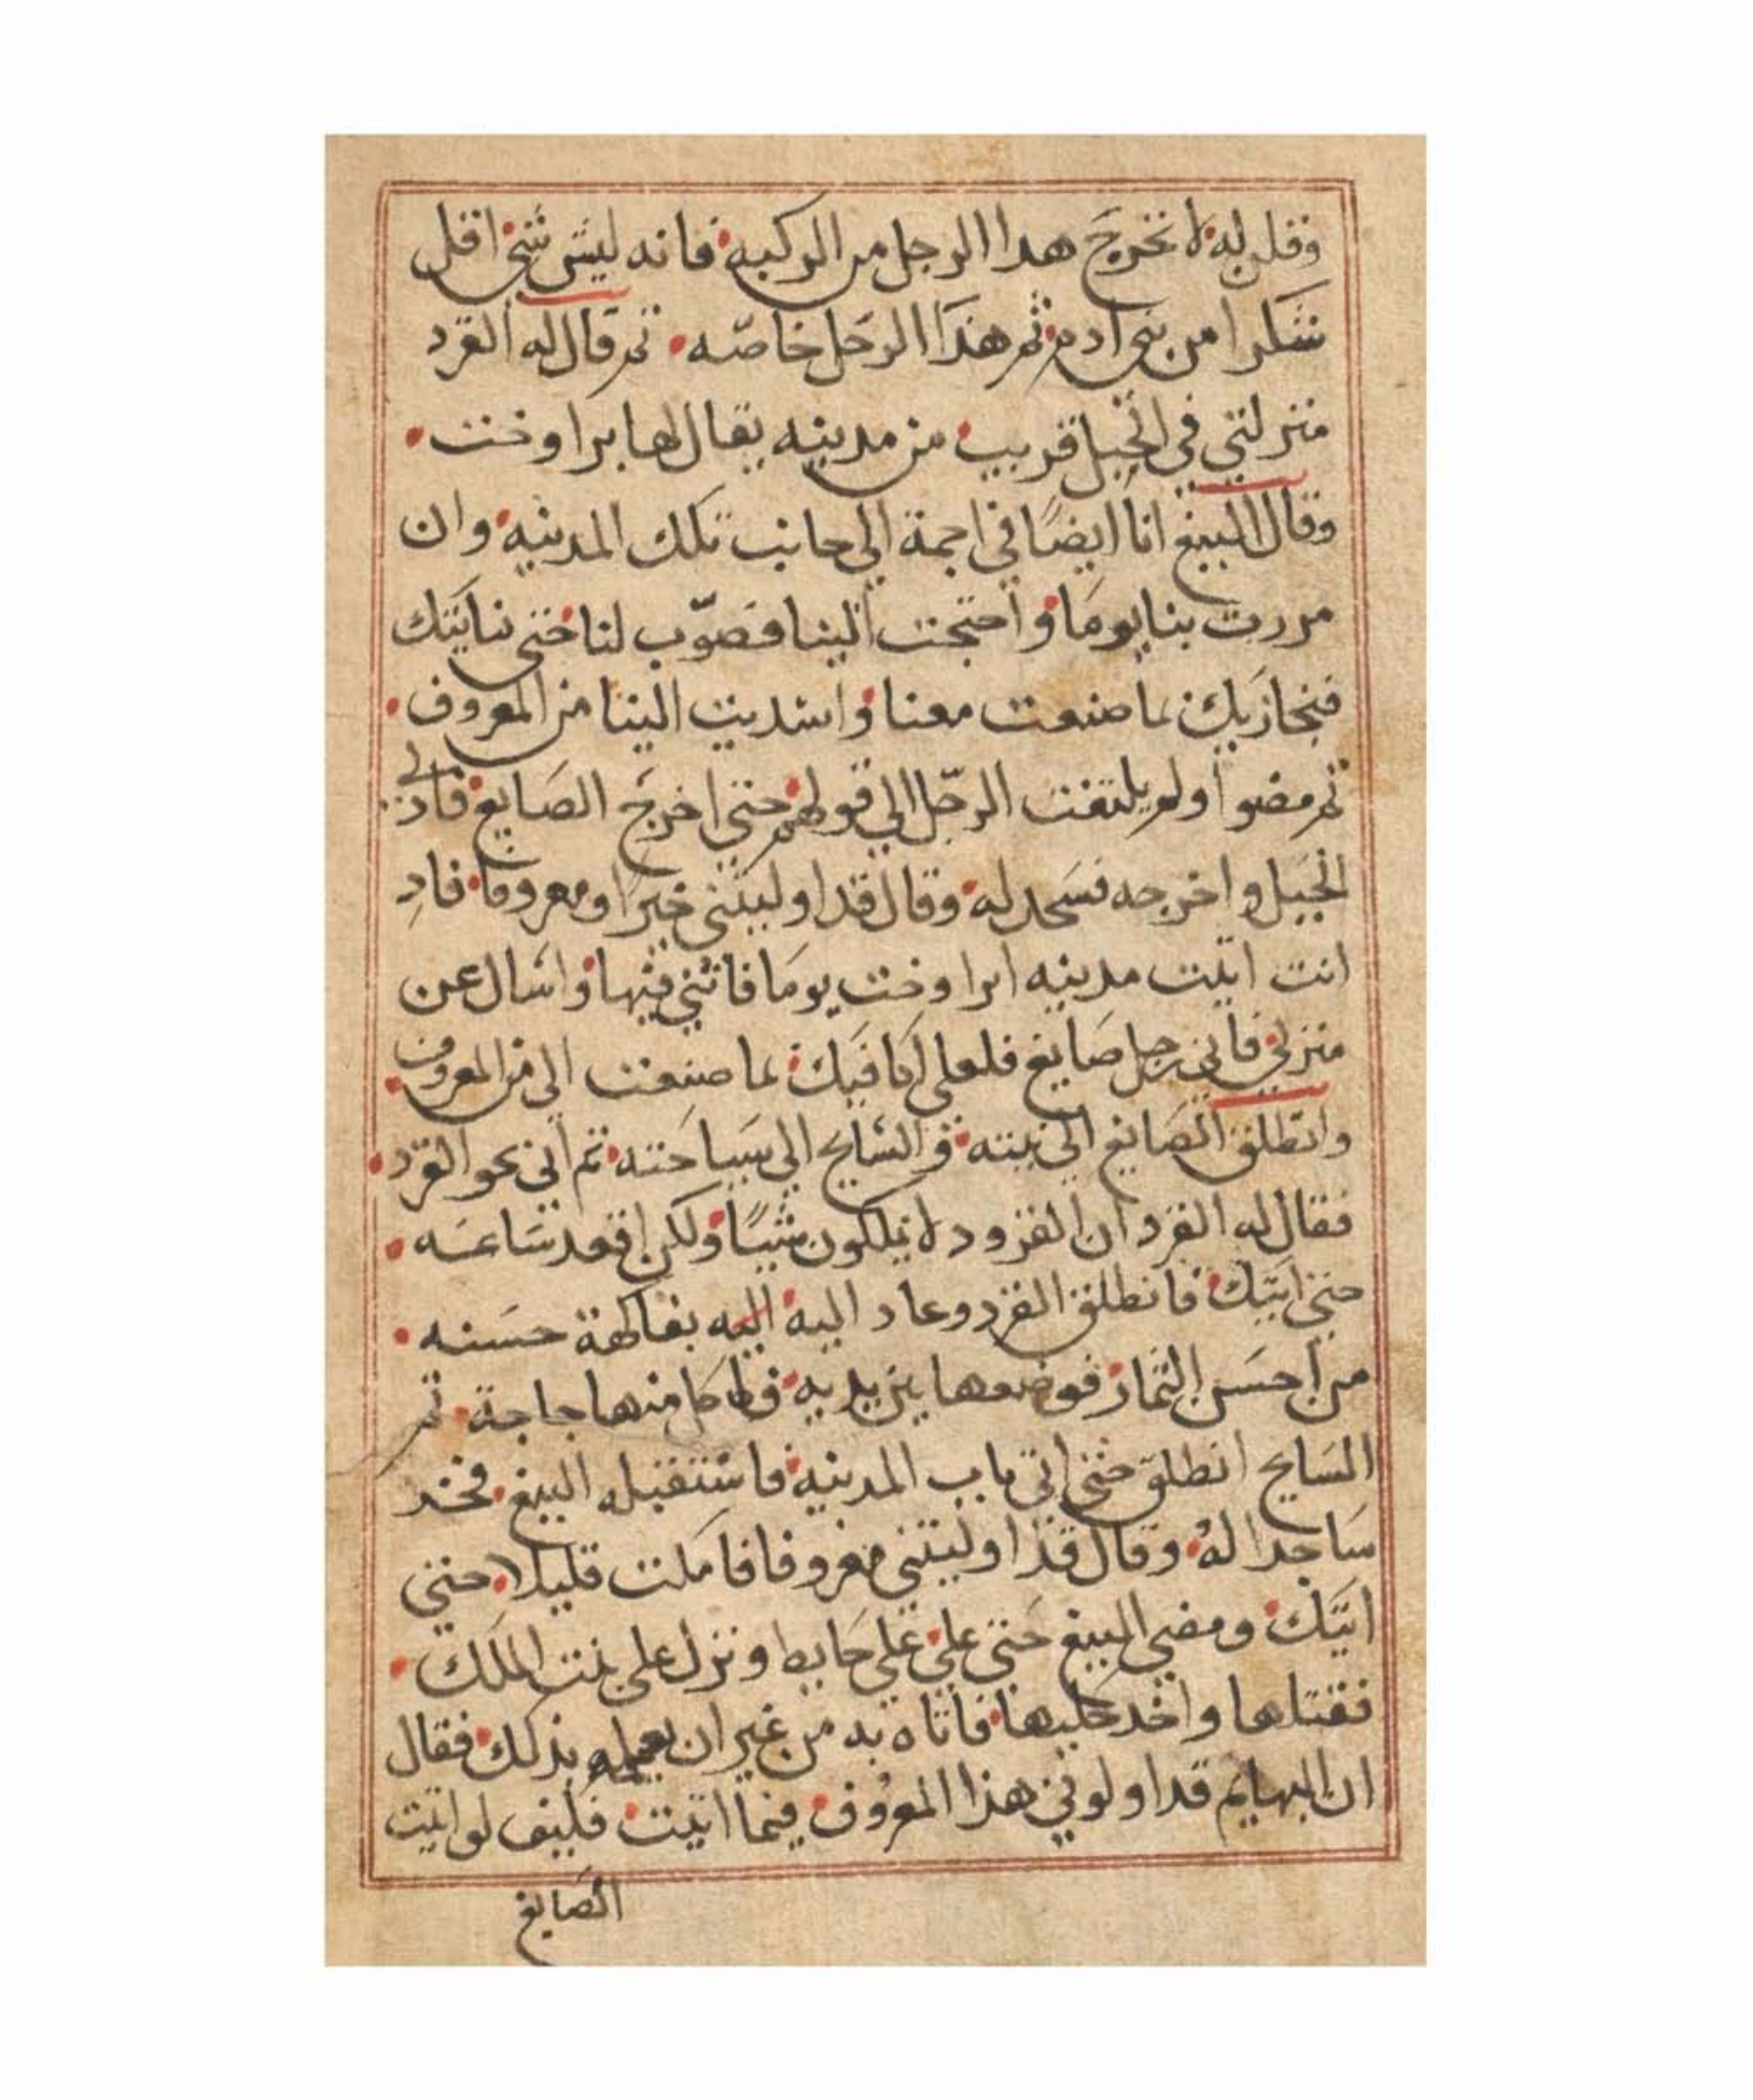 وقلن له لا تخرج هدا الرجل من الركيه فانه ليس شي اقل
شكرا من بني ادم ثم هذا الرجل خاصه ثم قال له القرد
منزلتي في الجبل قريب من مدينه يقال لها براوخت
وقال الببغ انا ايضًا في اجمة الي جانب تلك المدينه وان
مررت بنا يومًا واحتجت الينا فصوّب لنا حتي ناتيك
فنجازيك بما صنعت معنا واسديت الينا من المعروف
ثم مضوا ولم يلتفت الرجل الي قولهم حتي اخرج الصايغ فادلي
الحبل واخرجه فسجد له وقال قد اوليتني خيرًا ومعروفا فاد
انت اتيت مدينه ابراوخت يومًا فاتني فيها واسال عن
منزلي فاني رجل صايغ فلعلي اكافيك بما صنعت الي من المعروف
وانطلق الصايغ الي بيته والسايح الي سياحته ثم اتي نحو القرد
فقال له القرد ان القرود لا يملكون شيًا ولكن اقعد ساعه
حتي اتيك فانطلق القرد وعاد اليه اليه بفاكهة حسنه
من احسن الثمار فوضعها بين يديه فاكل منها حاجة ثم
السايح انطلق حتي اتي باب المدينه فاستقبله الببغ فخد
ساجدا له وقال قد اوليتني معروفا فامكت قليلا حتي
اتيك ومضي الببغ حتي علي علي حايط ونزل علي بنت الملك
فقتلها واخد حليها فاتاه به من غير ان يعلمه بذلك فقال
ان البهايم قد اولوني هذا المعروف فيما اتيت فكيف لو اتيت
الصايغ